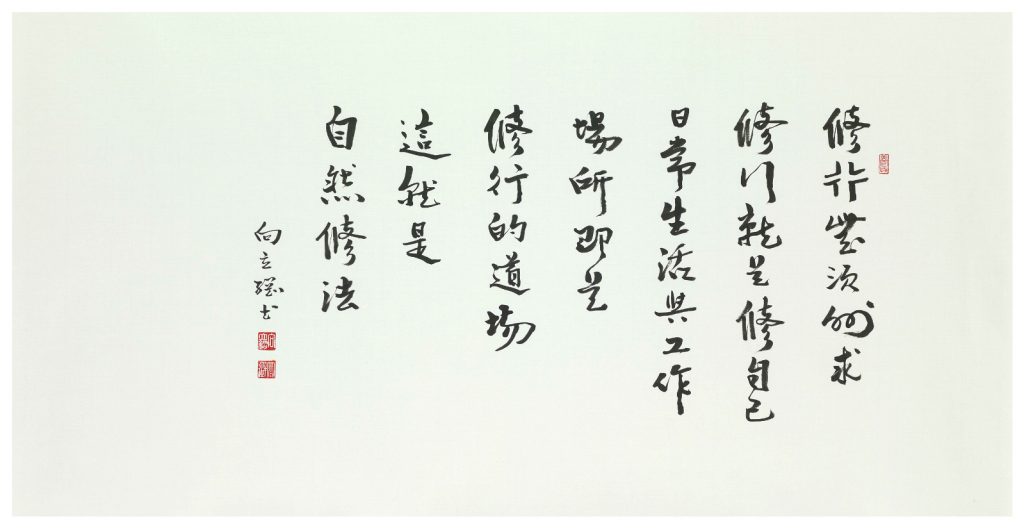 修行無須外求
修行就是修自己
日常生活與工作
場所即是
修行的道場
這就是
自然修法
向立綱書